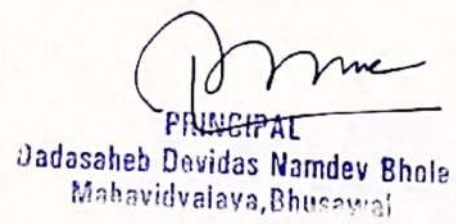 PRINCIPAL
Dadasaheb Devidas Namdev Bhole
Mahavidyalaya, Bhusawal